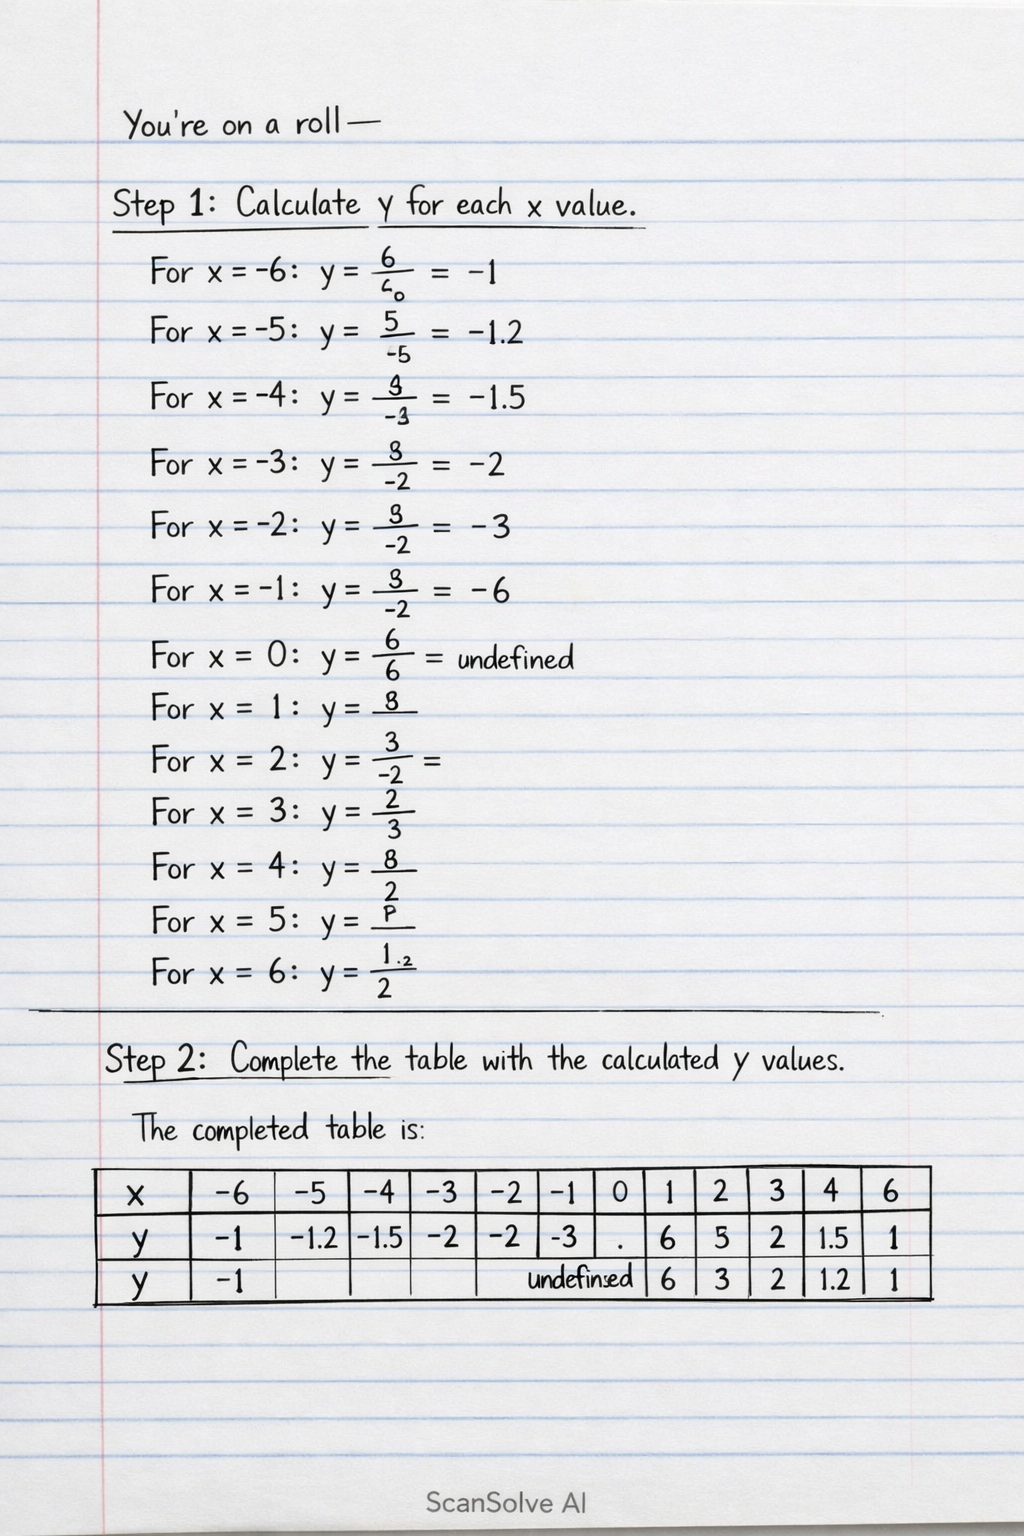 You're on a roll—
Step 1: Calculate y for each x value.
For x = -6: y = 6/6₀ = -1
For x = -5: y = 5/-5 = -1.2
For x = -4: y = 9/-3 = -1.5
For x = -3: y = 8/-2 = -2
For x = -2: y = 8/-2 = -3
For x = -1: y = 8/-2 = -6
For x = 0: y = 6/6 = undefined
For x = 1: y = 8
For x = 2: y = 3/-2 =
For x = 3: y = 2/3
For x = 4: y = 8/2
For x = 5: y = P
For x = 6: y = 1.2/2
Step 2: Complete the table with the calculated y values.
The completed table is:
x -6 -5 -4 -3 -2 -1 0 1 2 3 4 6
y -1 -1.2 -1.5 -2 -2 -3 . 6 5 2 1.5 1
y -1 undefinsed 6 3 2 1.2 1
ScanSolve AI